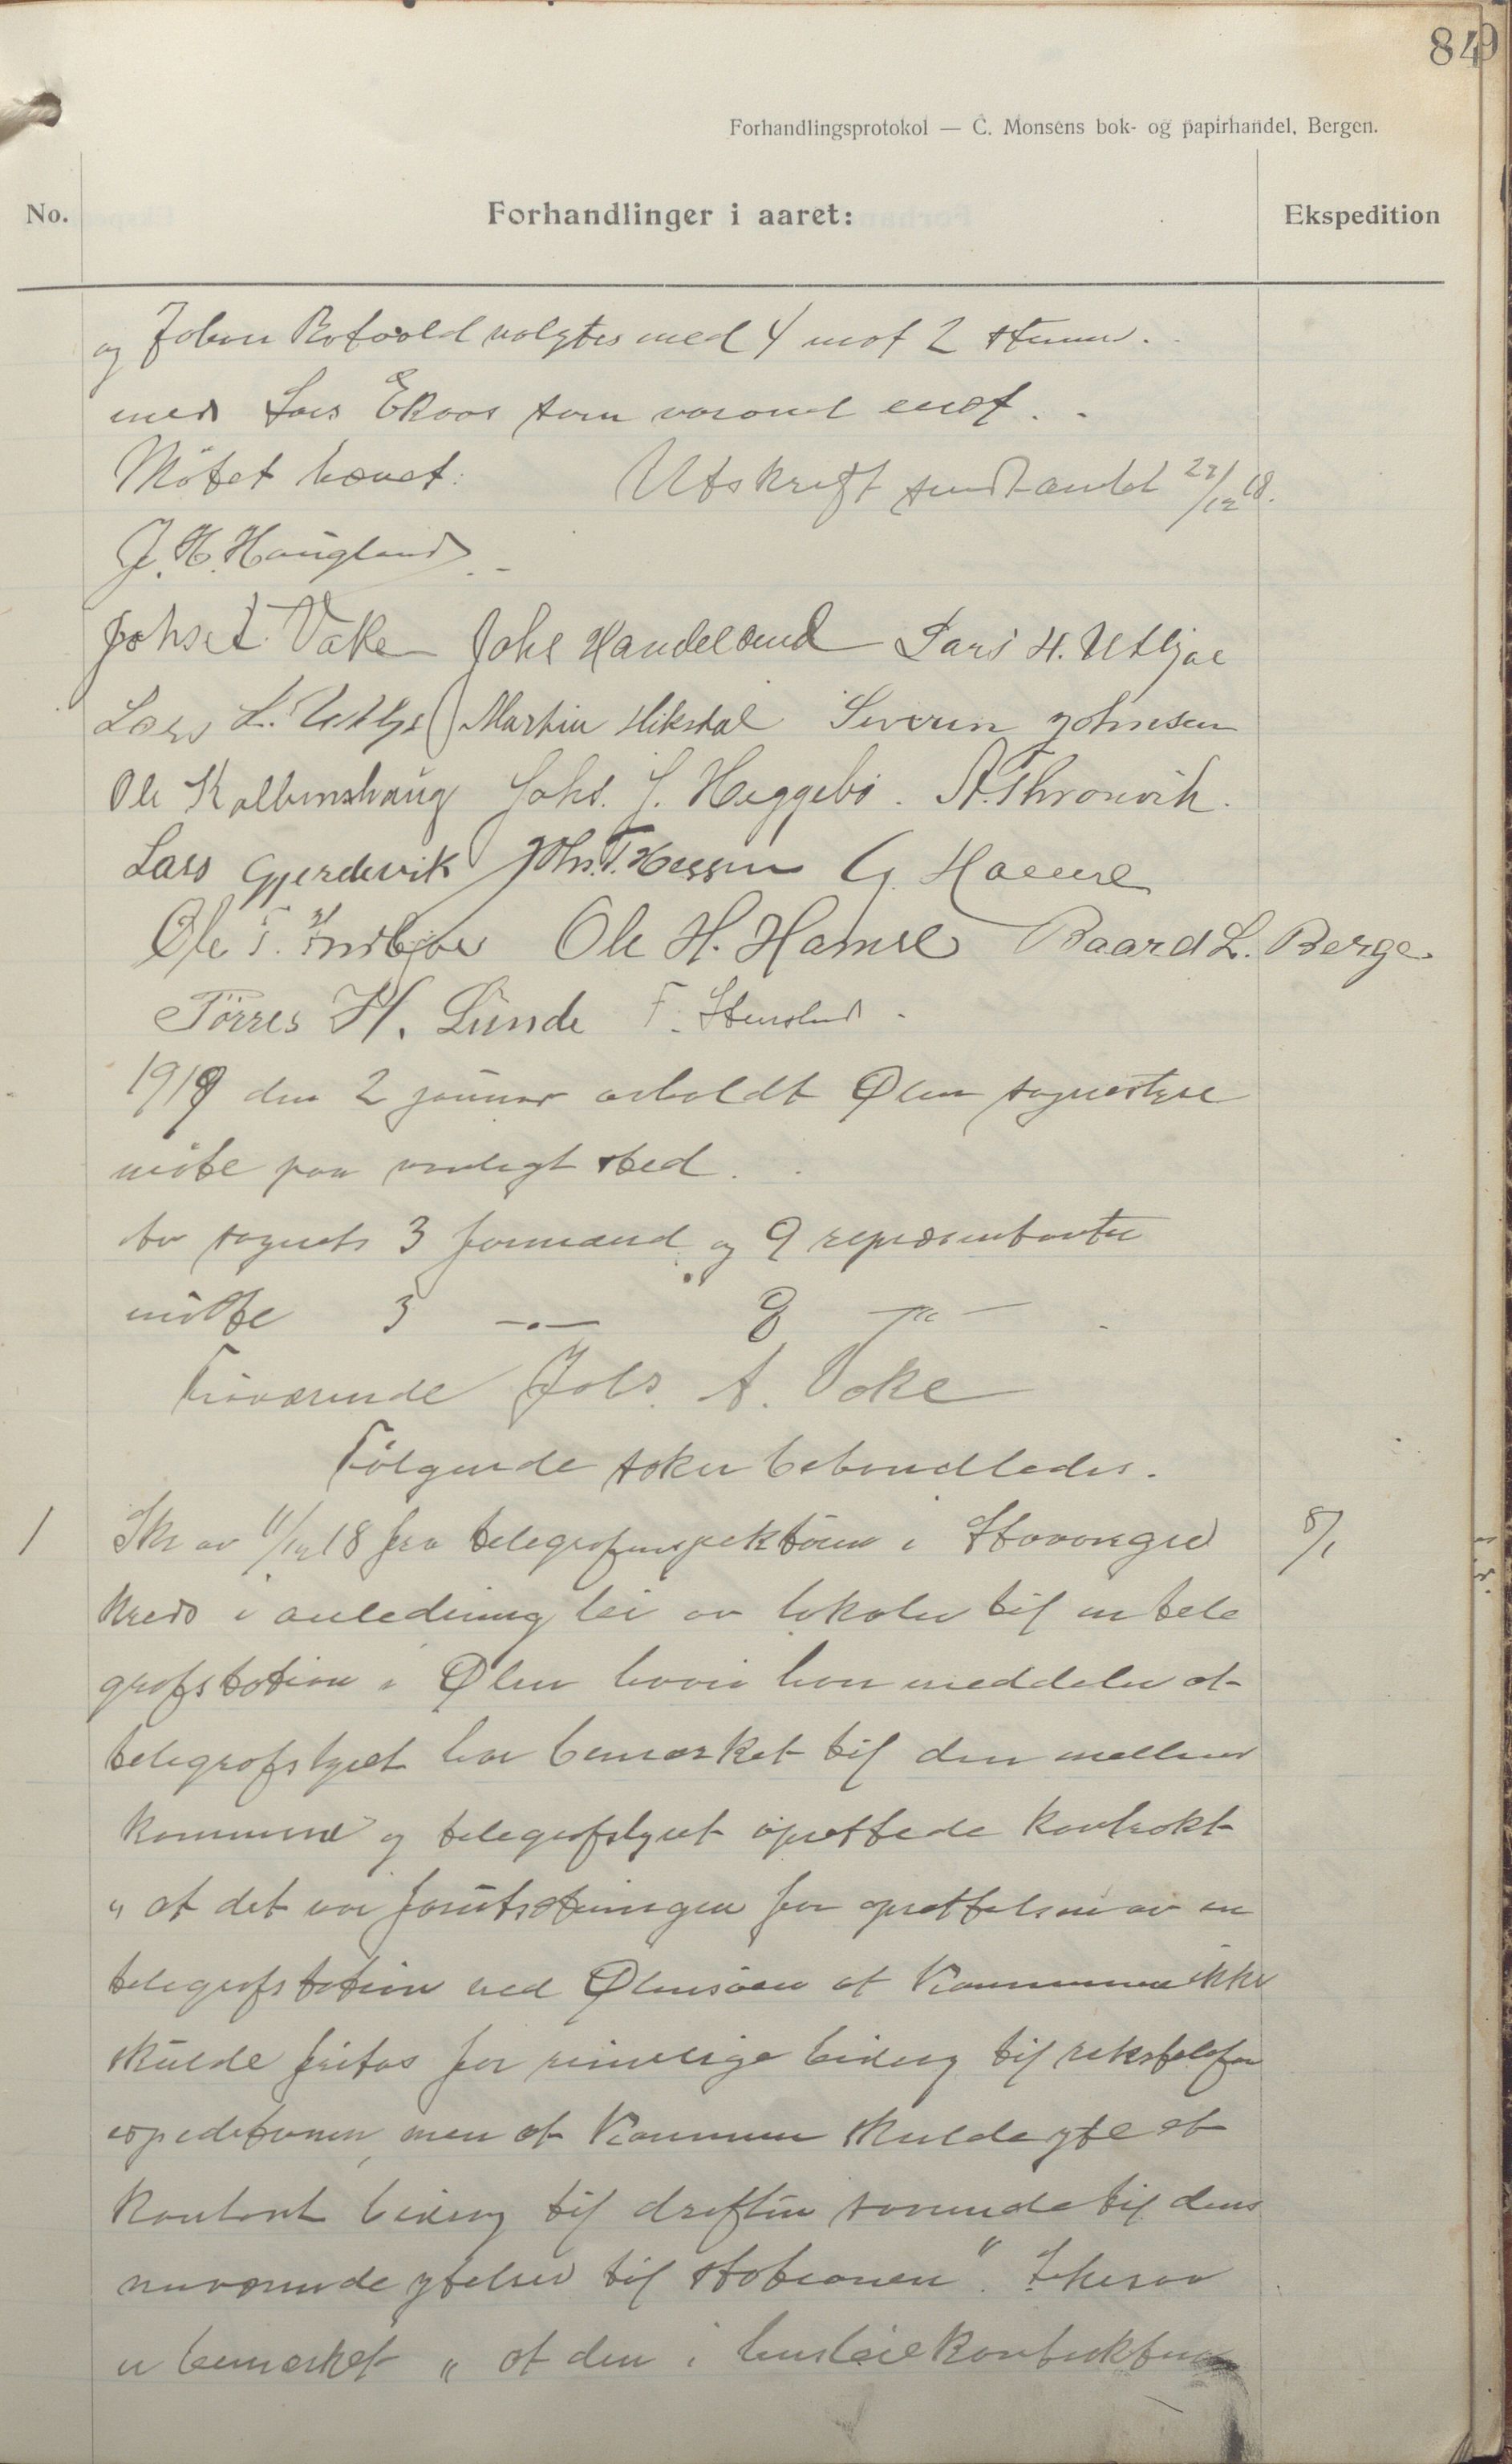 84
Forhandlingsprotokol — C. Monsens bok- og papirhandel, Bergen.
No.
Forhandlinger i aaret:
Ekspedition
og Johan valgtes med 4 mot 2 stemmer.
med Lars Ekaas som varamd
Møtet hævet: Utskrift amtet 18.
J. H. Haugland
Vake Johs Handeland Lars H. Utbjoe
Lars L. Martin Hikstal Severin Johnsen
Ole Kolbenshaug Johs. J. Heggebø. A. Thronvik.
Lars Gjerdevik Johs. T. G. Hamre
Ole T. Ole H. Hamre Baard L. Berge.
Törres H. Lunde F. Stensland.
1919 den 2 januar avholdt Ølen sognestyre
møte paa vanligt sted.
Av sognets 3 formænd og 9 repræsentanter
møtte 3 —"— 8 —"—
Fraværende Johs. A. Vake
Følgende saker behandledes.
1 Skr av 11/12 18 fra telegrafinspektøren i Stavanger 8/1
kreds i anledning leie av lokaler til en tele
grafstation i Ølen hvori han meddeler at
telegrafstyret har bemærket til den mellem
kommune og telegrafstyret oprettede kontrakt
„ at det var forutsætningen for oprettelsen av en
telegrafstation ved Ølensøen at Kommunen ikke
skulde fritas for rimelige bidrag til rikstelefon
expeditionen, men at Kommunen skulde yte et
kontant bidrag til driften svarende til dens
nuværende ytelser til stationen". Ikesaa
er bemærket „ at den i husleiekontrakten